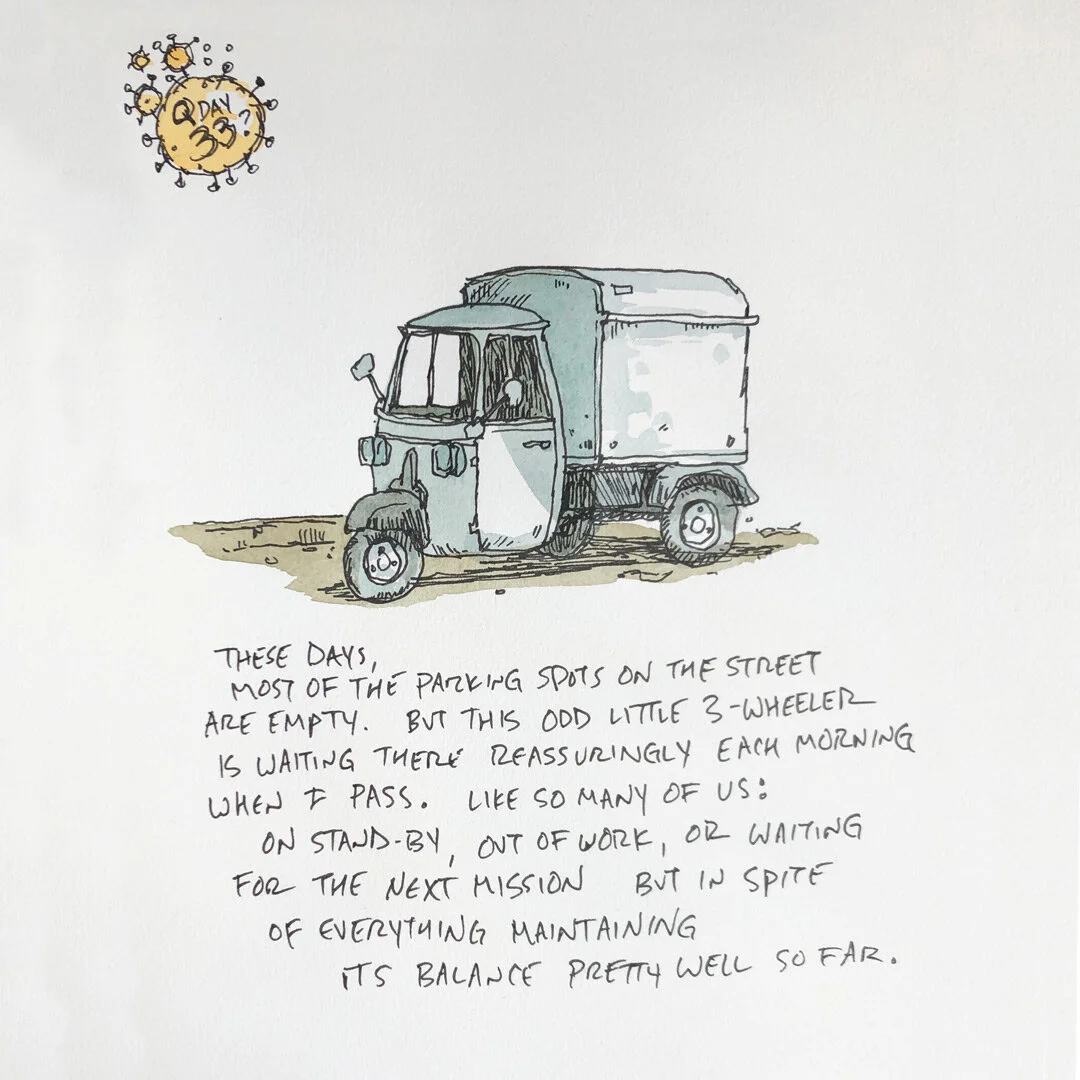 Q DAY
33?
THESE DAYS,
MOST OF THE PARKING SPOTS ON THE STREET
ARE EMPTY. BUT THIS ODD LITTLE 3-WHEELER
IS WAITING THERE REASSURINGLY EACH MORNING
WHEN I PASS. LIKE SO MANY OF US:
ON STAND-BY, OUT OF WORK, OR WAITING
FOR THE NEXT MISSION BUT IN SPITE
OF EVERYTHING MAINTAINING
ITS BALANCE PRETTY WELL SO FAR.